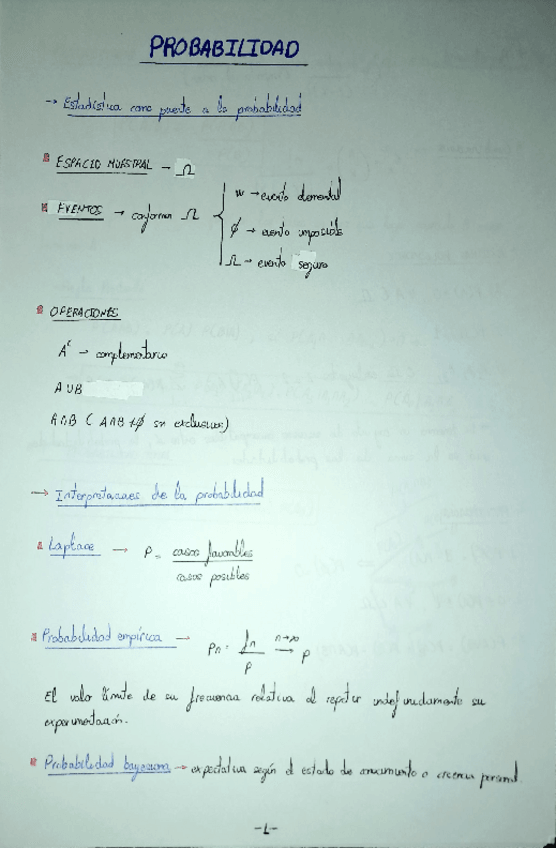 PROBABILIDAD
→ Estadística como puente a la probabilidad
ESPACIO MUESTRAL - Ω
EVENTOS → conforman Ω
w → evento elemental
∅ → evento imposible
Ω → evento seguro
OPERACIONES
Aᶜ → complementario
A∪B
A∩B ( A∩B ≠∅ son exclusivos)
→ Interpretaciones de la probabilidad
Laplace → P = casos favorables / casos posibles
Probabilidad empírica → Pn = fn / p n→∞ → p
El valor límite de su frecuencia relativa al repetir indefinidamente su
experimentación.
Probabilidad bayesiana → expectativa según el estado de conocimiento o creencia personal.
-1-